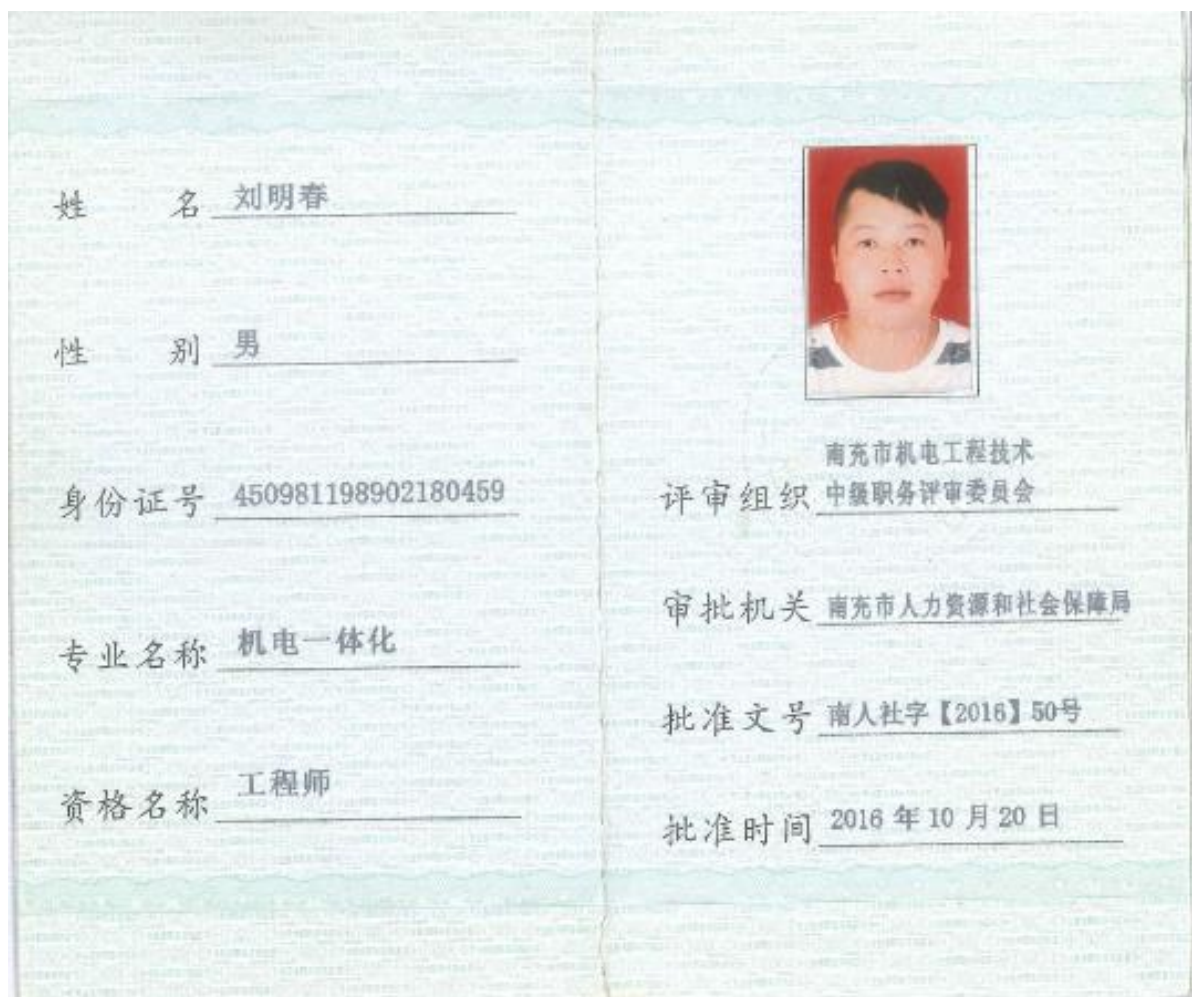 姓名 刘明春
性别 男
身份证号 450981198902180459
专业名称 机电一体化
资格名称 工程师
南充市机电工程技术
评审组织 中级职务评审委员会
审批机关 南充市人力资源和社会保障局
批准文号 南人社字【2016】50号
批准时间 2016年10月20日